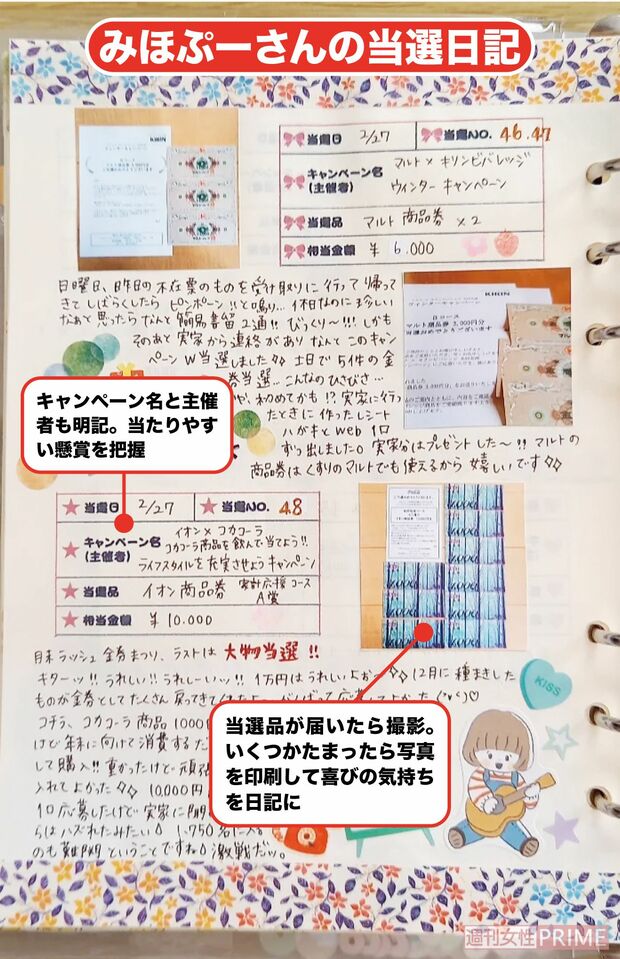 みほぷーさんの当選日記
KIRIN
当選日 2/27 当選NO. 46.47
キャンペーン名
(主催者)
マルト×キリンビバレッジ
ウィンターキャンペーン
当選品 マルト商品券×2
相当金額 ¥6.000
日曜日、昨日の不在票のものを受け取りに行って帰って
きてしばらくしたらピンポーン!!と鳴り…休日なのに珍しい
なぁと思ったらなんと簡易書留2通!!びっくり〜!!!しかも
そのあと実家から連絡がありなんとこのキャン
ペーンW当選しました 土日で5件の金
券当選…こんなのひさびさ…
や、初めてかも!?実家に行っ
たときに作ったレシート
ハガキとweb 1口
ずつ出しました。実家分はプレゼントした〜!!マルトの
商品券はくすりのマルトでも使えるから嬉しいです
KIRIN
ウィンターキャンペーン
Bコース
マルト商品券 3,000円分
当選おめでとうございます
キャンペーン名と主催
者も明記。当たりやす
い懸賞を把握
当選日 2/27 当選NO. 48
キャンペーン名
(主催者)
イオン×コカコーラ
コカコーラ商品を飲んで当てよう!!
ライフスタイルを充実させようキャンペーン
当選品 イオン商品券 家計応援コース
A賞
相当金額 ¥10.000
月末ラッシュ金券まつり、ラストは大物当選!!
キターッ!!うれしい!!うれしーいッ!!1万円はうれしいよね〜 12月に種まきした
ものが金券としてたくさん戻ってきて
コチラ、コカコーラ商品1000
けど年末に向けて消費する
して購入!!重かったけど頑張
入れてよかった 10,000円
1口応募したけど実家に
らはハズれたみたい 1,750名に入る
のも難関ということですね。激戦だッ。
当選品が届いたら撮影。
いくつかたまったら写真
を印刷して喜びの気持ち
を日記に
KISS
週刊女性PRIME